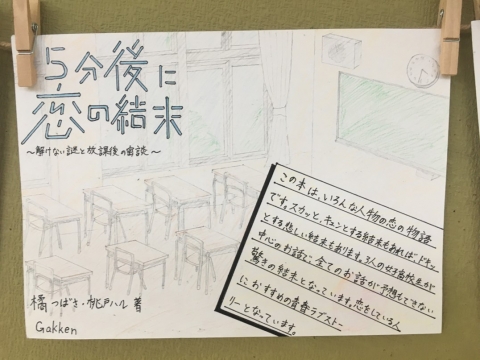 5分後に
恋の結末
～解けない謎と放課後の密談～
この本は、いろんな人物の恋の物語
です。スカッと、キュンとする結末もあれば、ドキッ
とする悲しい結末もあります。3人の女子高校生が
中心のお話で、全てのお話が予想もできない
驚きの結末となっています。恋をしている人
におすすめの青春ラブストー
リーとなっています。
橘つばさ・桃戸ハル 著
Gakken